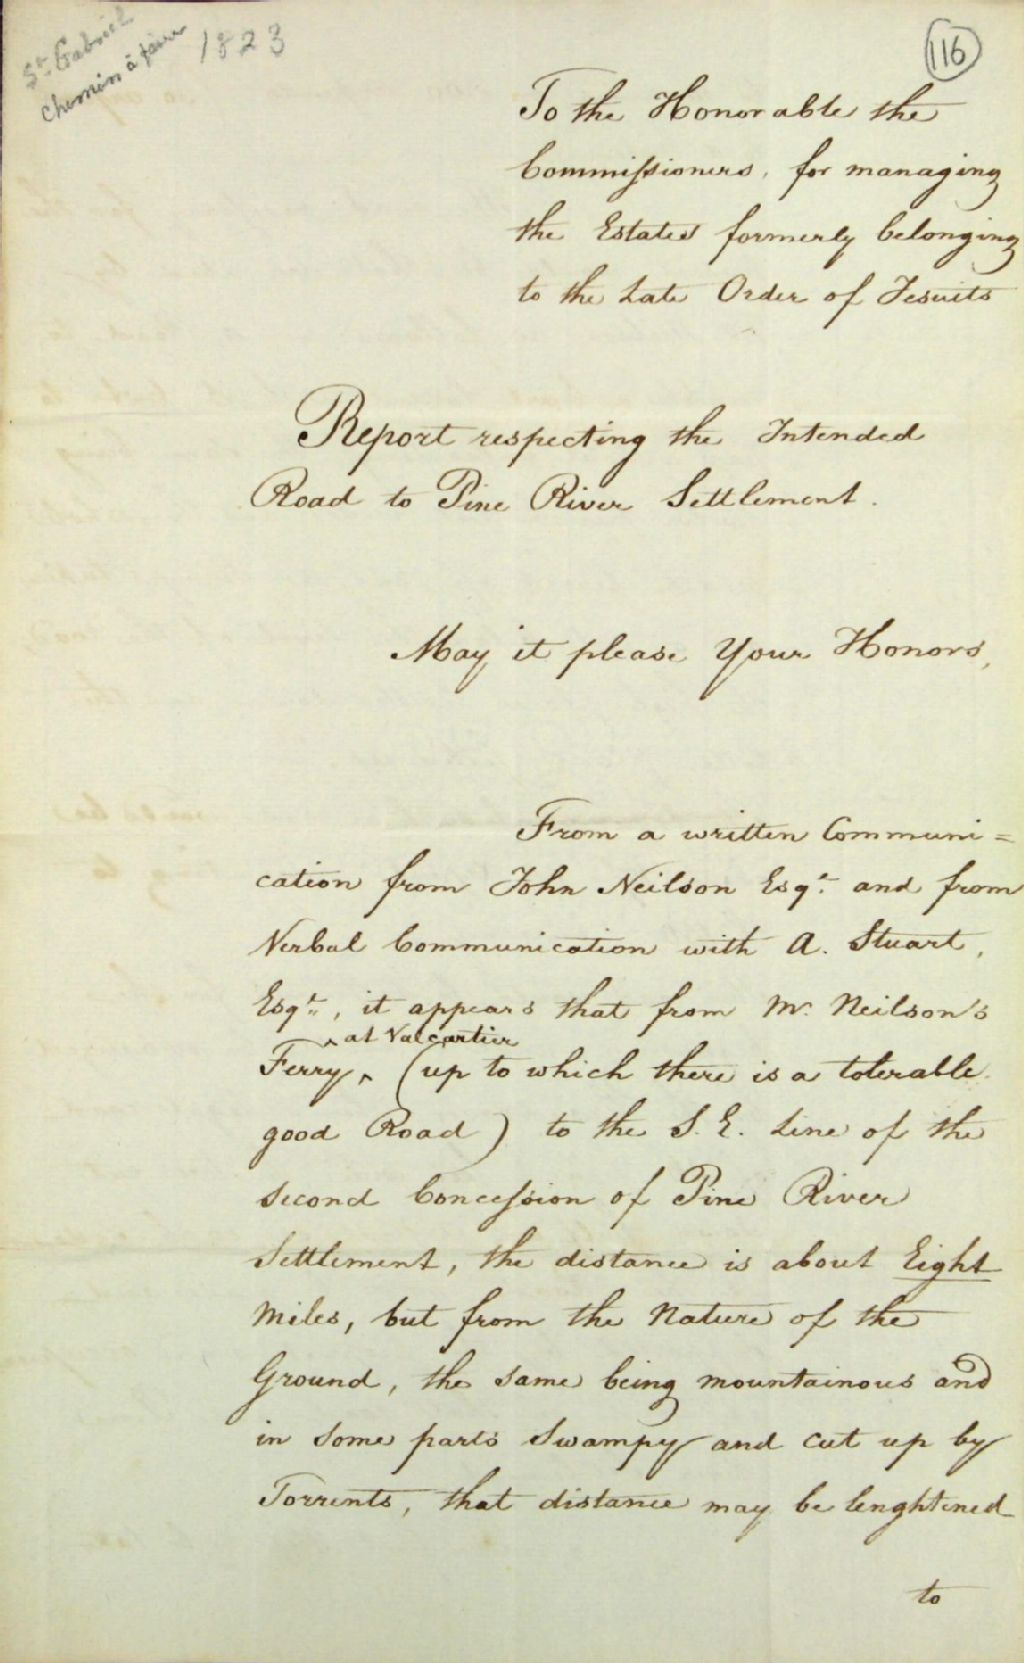 St Gabriel
chemin à faire
1823
116
To the Honorable the
Commissioners, for managing
the Estates formerly belonging
to the Late Order of Jesuits
Report respecting the Intended
Road to Pine River Settlement.
May it please Your Honors,
From a written Communi=
cation from John Neilson Esqr. and from
Verbal Communication with A. Stuart,
Esqr., it appears that from Mr. Neilson's
at Valcartier
Ferry, (up to which there is a tolerable
good Road) to the S. E. Line of the
second Concession of Pine River
Settlement, the distance is about Eight
Miles, but from the Nature of the
Ground, the same being mountainous and
in some parts Swampy and cut up by
Torrents, that distance may be lenghtened
to